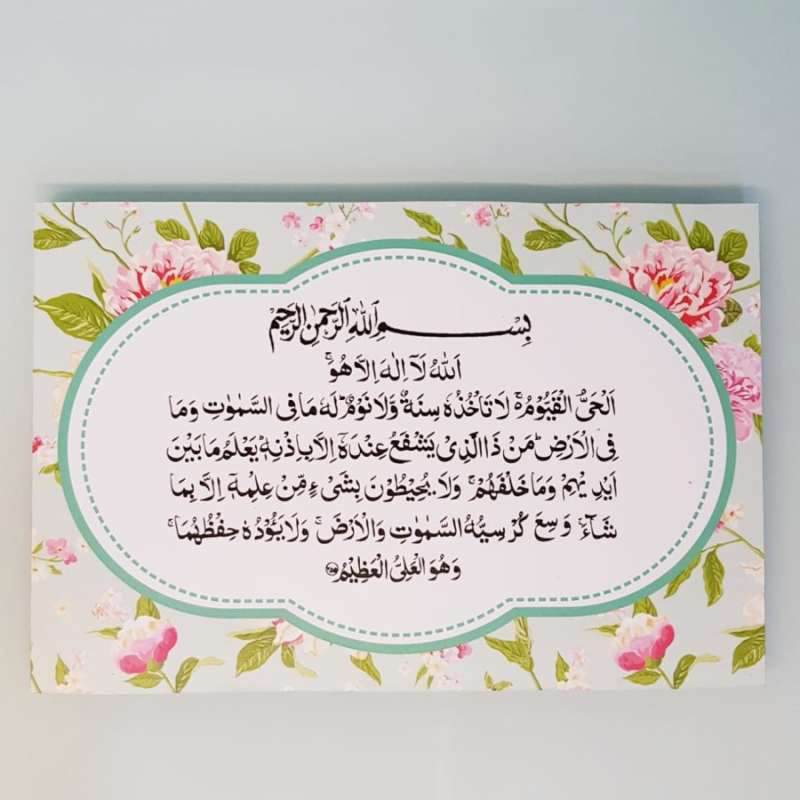 بِسْمِ اللهِ الرَّحْمٰنِ الرَّحِيْمِ
اَللهُ لَآ اِلٰهَ اِلَّا هُوَۚ
اَلْحَيُّ الْقَيُّوْمُ ەۚ لَا تَأْخُذُهٗ سِنَةٌ وَّلَا نَوْمٌؕ لَهٗ مَا فِى السَّمٰوٰتِ وَمَا
فِى الْاَرْضِؕ مَنْ ذَا الَّذِىْ يَشْفَعُ عِنْدَهٗٓ اِلَّا بِاِذْنِهٖؕ يَعْلَمُ مَا بَيْنَ
اَيْدِيْهِمْ وَمَا خَلْفَهُمْۚ وَلَا يُحِيْطُوْنَ بِشَىْءٍ مِّنْ عِلْمِهٖٓ اِلَّا بِمَا
شَآءَۚ وَسِعَ كُرْسِيُّهُ السَّمٰوٰتِ وَالْاَرْضَۚ وَلَا يَـُٔوْدُهٗ حِفْظُهُمَاۚ
وَهُوَ الْعَلِىُّ الْعَظِيْمُ ۝۲۵۵